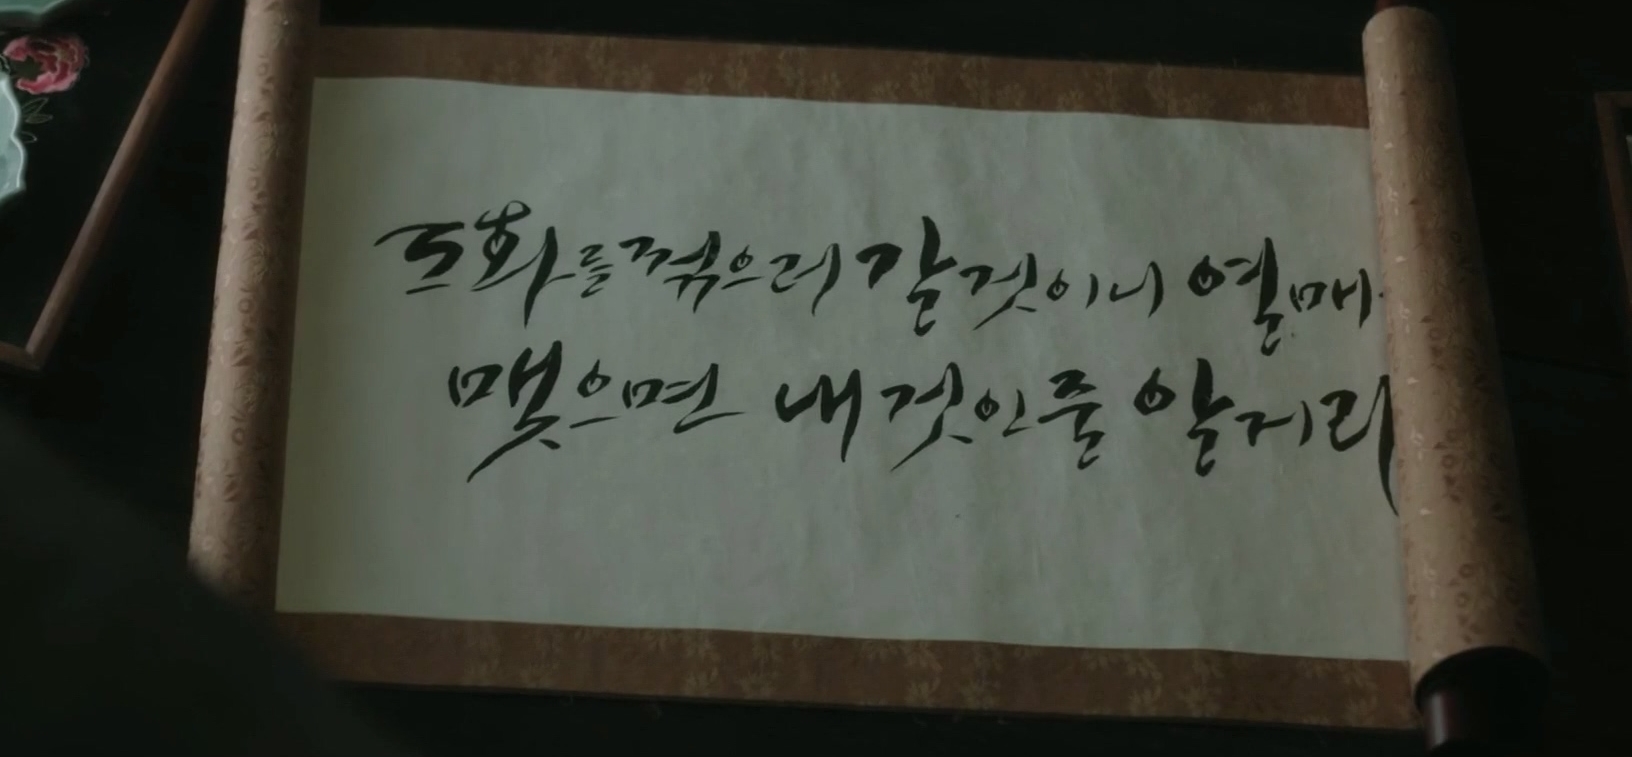 도화를 꺾으러 갈것이니 열매
맺으면 내것인줄 알거라